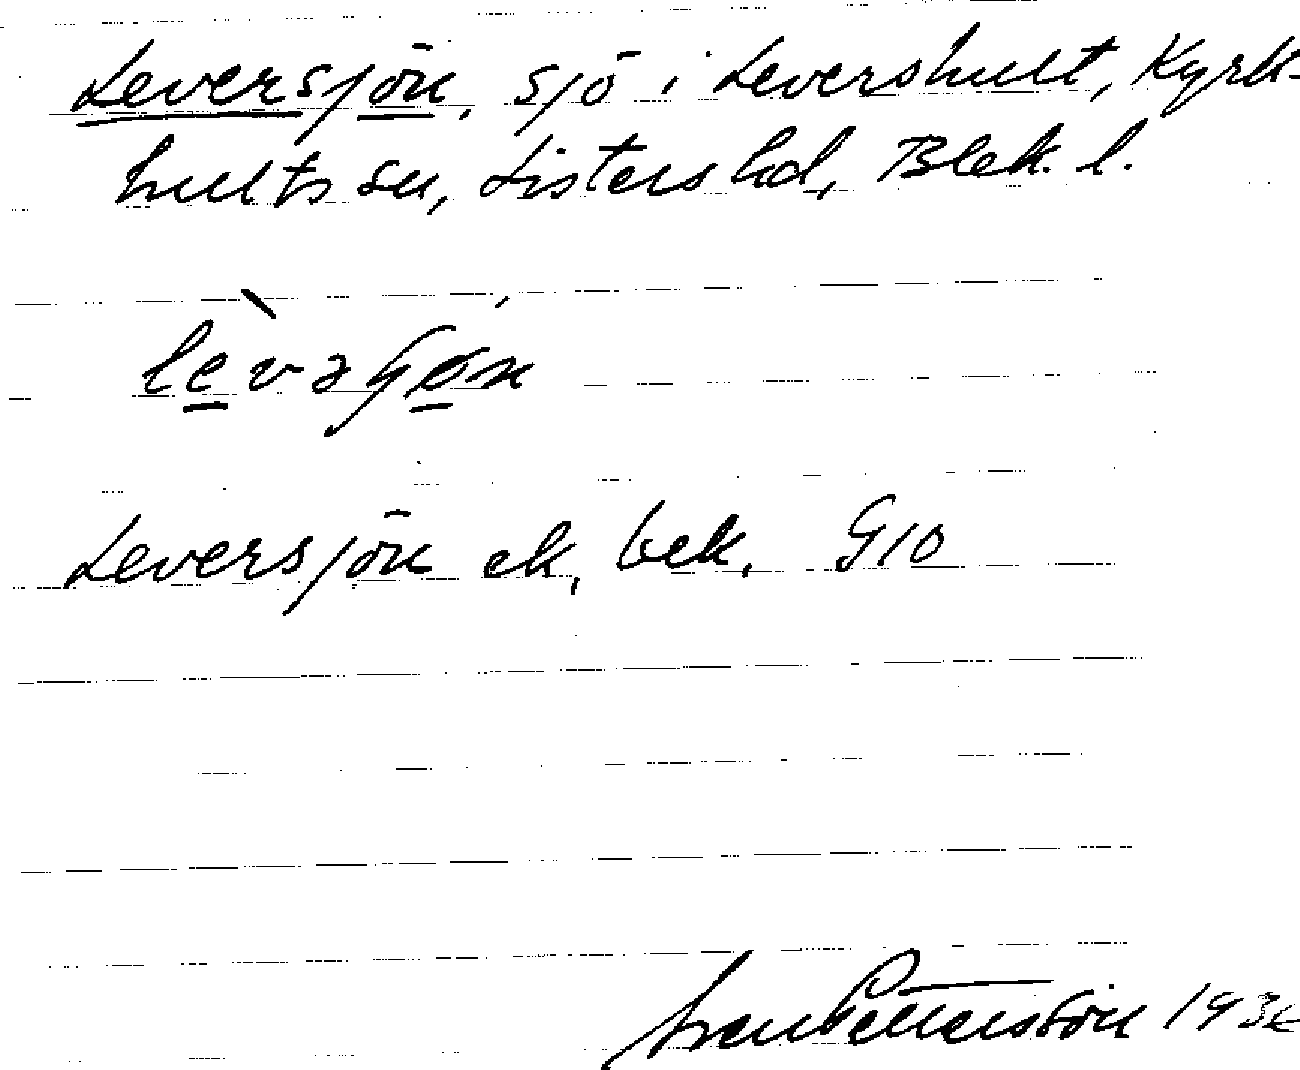 Leversjön, sjö i Levershult, Kyrk-
hults sn, Listers hd, Blek. l.
Leversjön ek, bek. G10
Pettersson 193